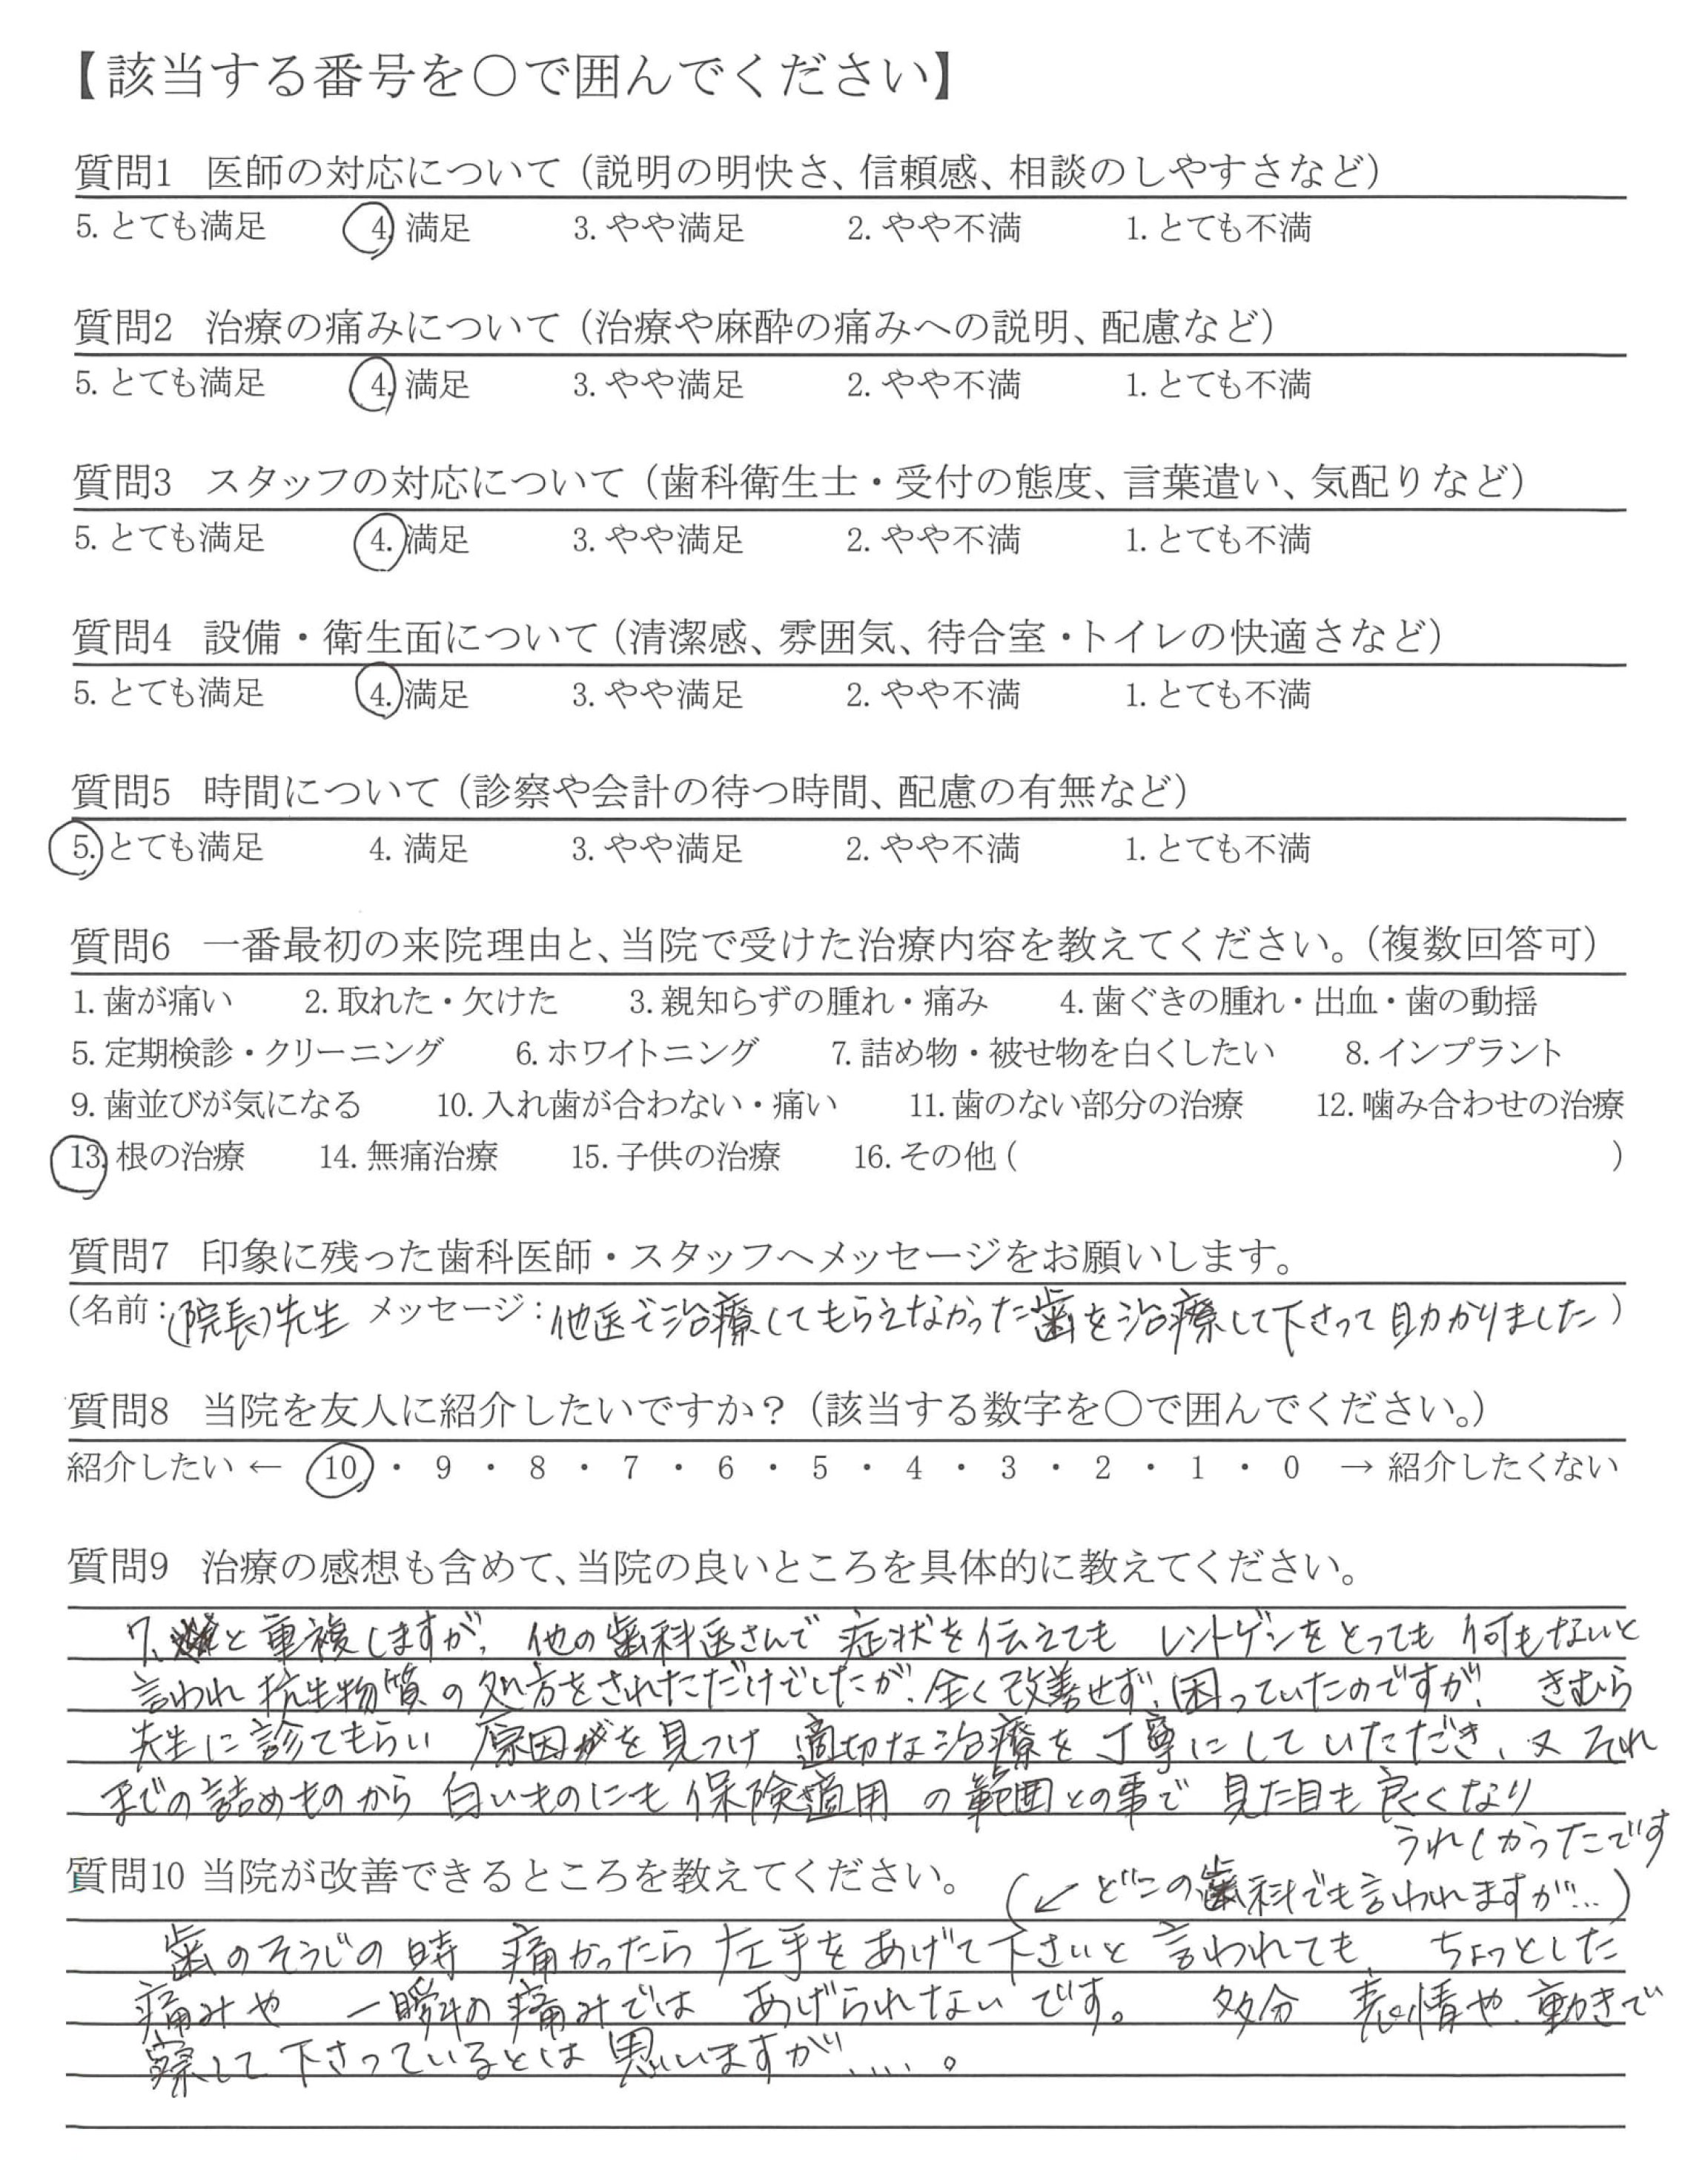 【該当する番号を○で囲んでください】
質問1 医師の対応について（説明の明快さ、信頼感、相談のしやすさなど）
5. とても満足 4. 満足 3. やや満足 2. やや不満 1. とても不満
質問2 治療の痛みについて（治療や麻酔の痛みへの説明、配慮など）
5. とても満足 4. 満足 3. やや満足 2. やや不満 1. とても不満
質問3 スタッフの対応について（歯科衛生士・受付の態度、言葉遣い、気配りなど）
5. とても満足 4. 満足 3. やや満足 2. やや不満 1. とても不満
質問4 設備・衛生面について（清潔感、雰囲気、待合室・トイレの快適さなど）
5. とても満足 4. 満足 3. やや満足 2. やや不満 1. とても不満
質問5 時間について（診察や会計の待つ時間、配慮の有無など）
5. とても満足 4. 満足 3. やや満足 2. やや不満 1. とても不満
質問6 一番最初の来院理由と、当院で受けた治療内容を教えてください。（複数回答可）
1. 歯が痛い 2. 取れた・欠けた 3. 親知らずの腫れ・痛み 4. 歯ぐきの腫れ・出血・歯の動揺
5. 定期検診・クリーニング 6. ホワイトニング 7. 詰め物・被せ物を白くしたい 8. インプラント
9. 歯並びが気になる 10. 入れ歯が合わない・痛い 11. 歯のない部分の治療 12. 噛み合わせの治療
13. 根の治療 14. 無痛治療 15. 子供の治療 16. その他（ ）
質問7 印象に残った歯科医師・スタッフへメッセージをお願いします。
（名前：(院長)先生 メッセージ：他医で治療してもらえなかった歯を治療して下さって助かりました）
質問8 当院を友人に紹介したいですか？（該当する数字を○で囲んでください。）
紹介したい ← 10 ・ 9 ・ 8 ・ 7 ・ 6 ・ 5 ・ 4 ・ 3 ・ 2 ・ 1 ・ 0 → 紹介したくない
質問9 治療の感想も含めて、当院の良いところを具体的に教えてください。
7. と重複しますが、他の歯科医さんで 症状を伝えても レントゲンをとっても 何もないと
言われ 抗生物質の処方をされただけでしたが、全く改善せず、困っていたのですが、 きむら
先生に診てもらい 原因を見つけ 適切な治療を丁寧にしていただき、又 それ
までの詰めものから 白いものにも 保険適用 の範囲との事で 見た目も良くなり
うれしかったです
質問10 当院が改善できるところを教えてください。
（↙どこの歯科でも言われますが…）
歯のそうじの時 痛かったら左手をあげて下さいと 言われても、 ちょっとした
痛みや 一瞬の痛みでは あげられないです。 多分 表情や、動きで
察して下さっているとは思いますが……。